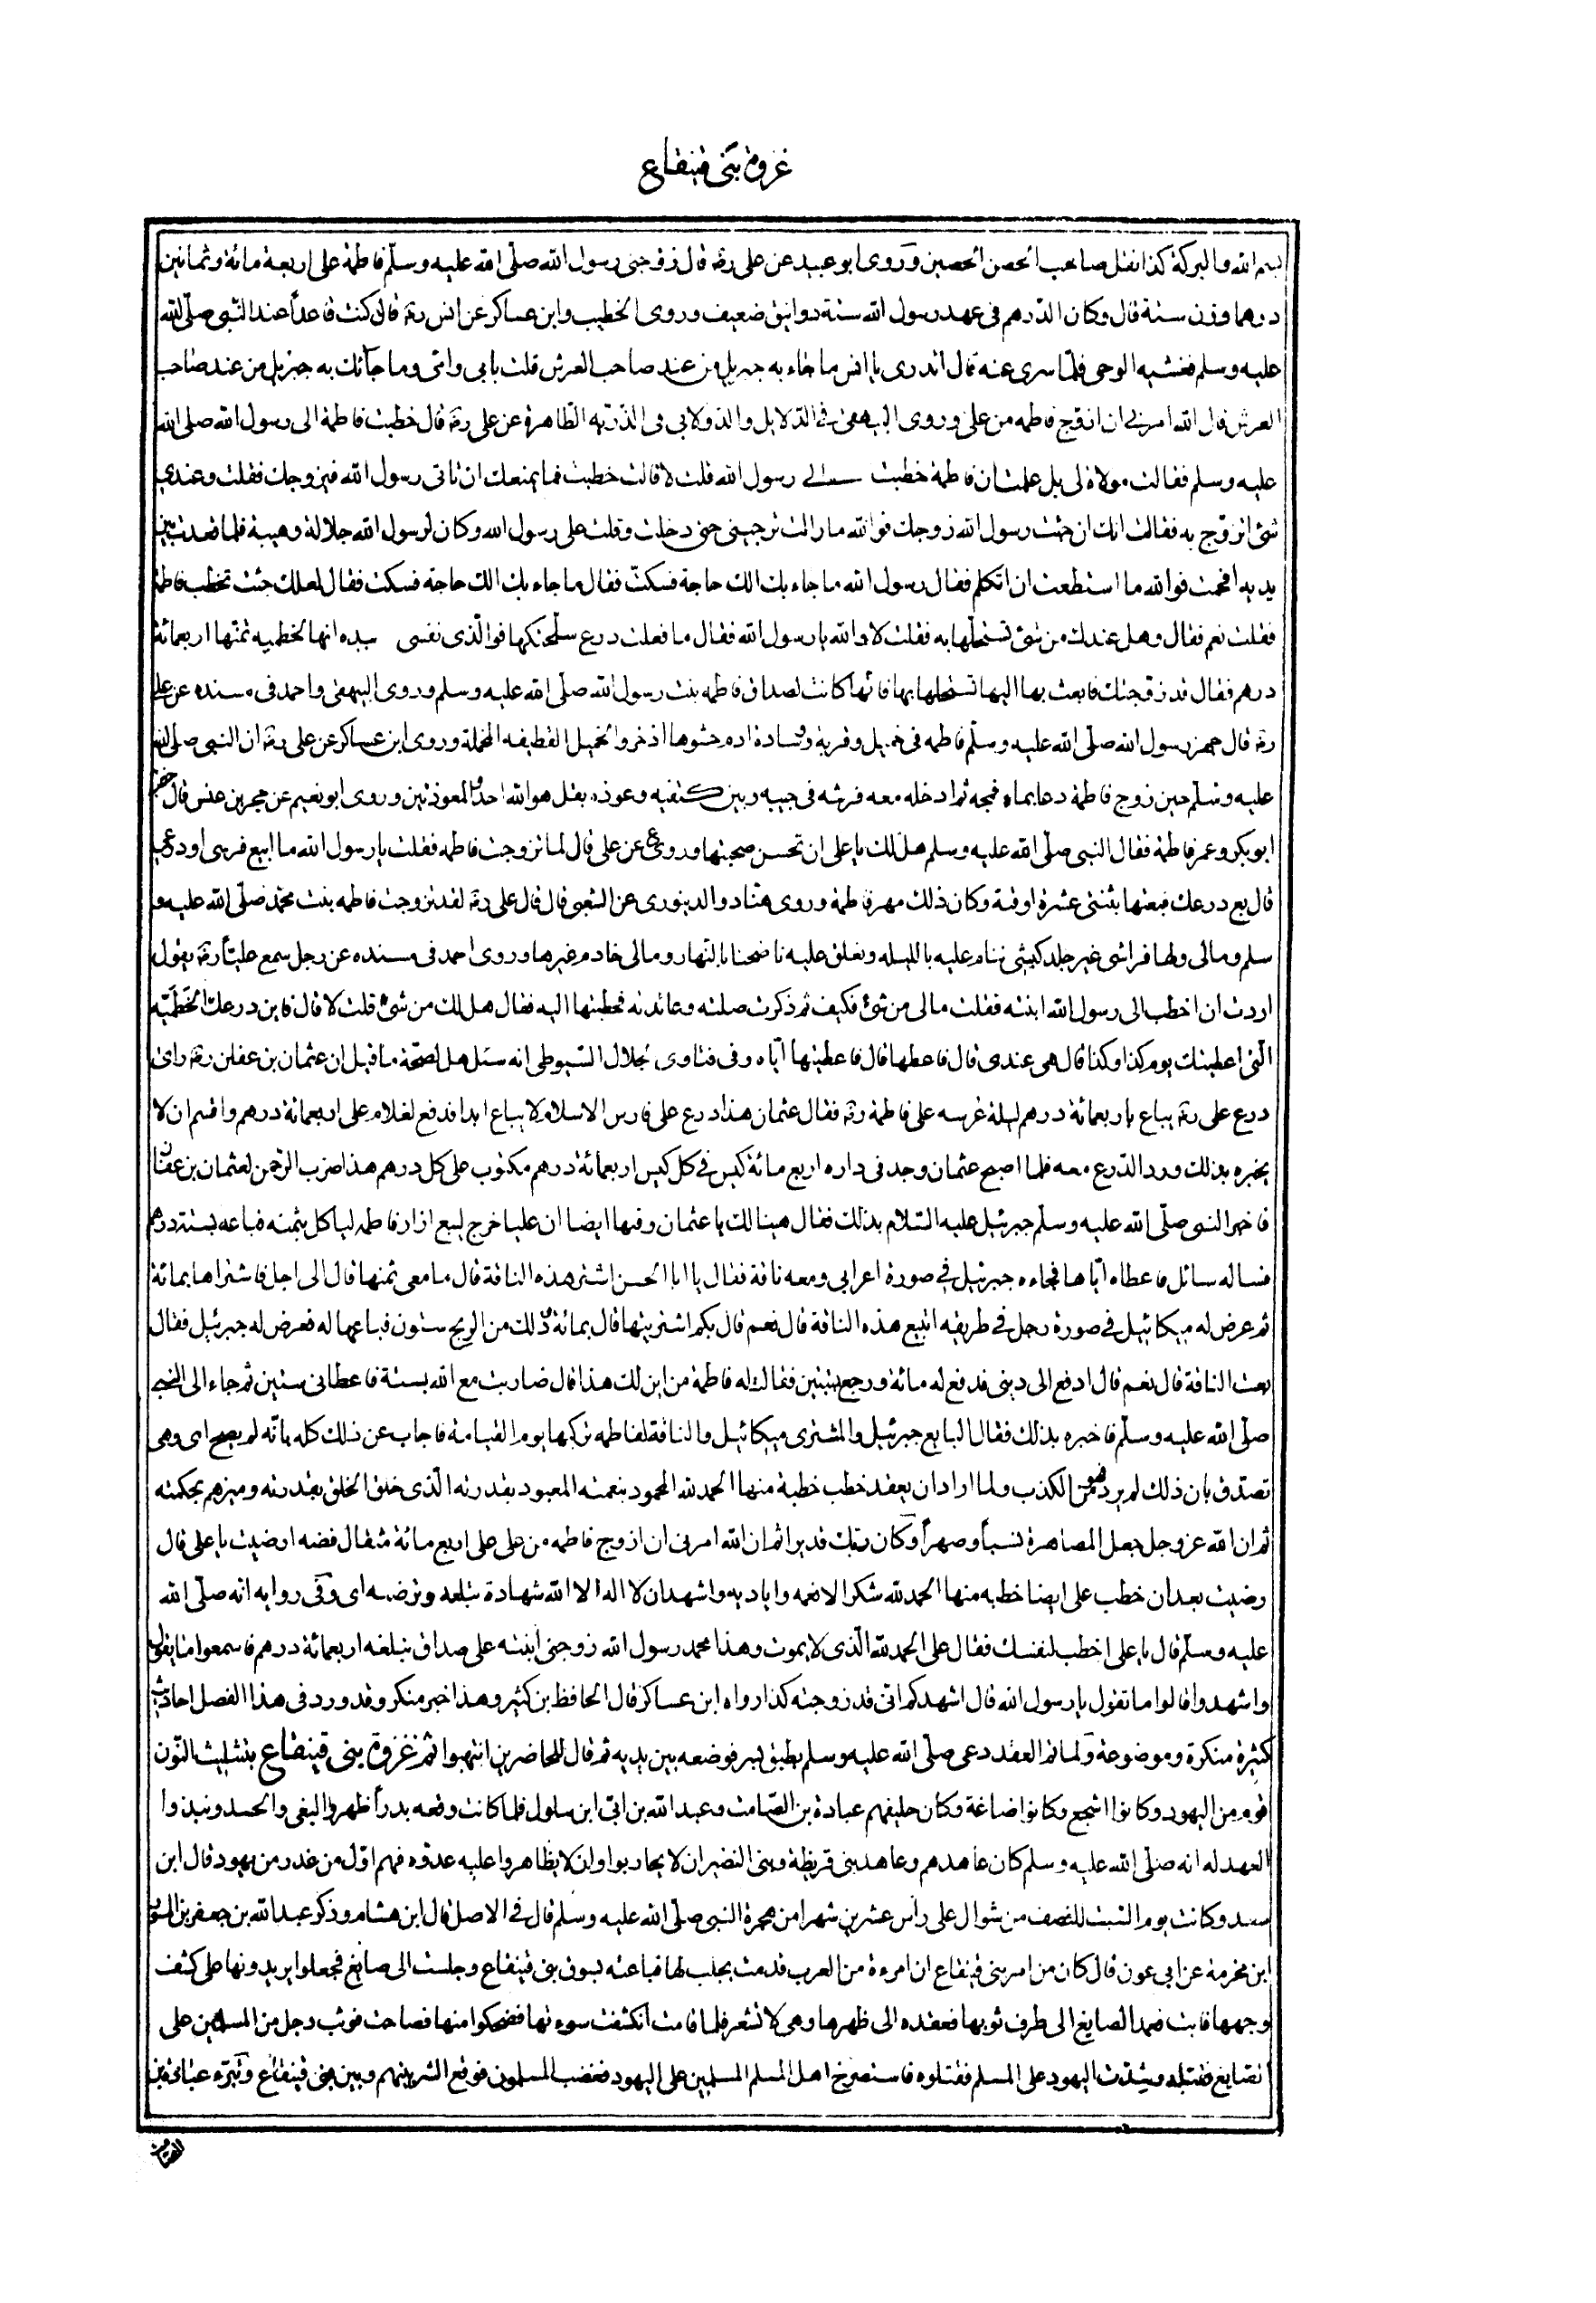 غزوة بنى قينقاع
بسم الله والبركة كذا نقل صاحب الحصن الحصين وروى ابو عبيد عن على رضه قال زوجنى رسول الله صلى الله عليه وسلم فاطمة على اربعة مائة وثمانين
درهما وزن ستة قال وكان الدرهم فى عهد رسول الله ستة دوانيق ضعيف وروى الخطيب وابن عساكر عن انس رضه قال كنت قاعدا عند النبى صلى الله
عليه وسلم فغشيه الوحى فلما سرى عنه قال اتدرى يا انس ما جاء به جبريل من عند صاحب العرش قلت بابى وامى وما جائك به جبريل من عند صاحب
العرش قال الله امرنى ان ازوج فاطمه من على وروى البيهقى فى الدلايل والدولابى فى الذريه الطاهرة عن على رضه قال خطبت فاطمة الى رسول الله صلى الله
عليه وسلم فقالت مولاة لى بل علمت ان فاطمة خطبت الى رسول الله قلت لا قالت خطبت فما يمنعك ان تاتى رسول الله فيزوجك فقلت وعندى
شئ اتزوج به فقالت انك ان جئت رسول الله زوجك فوالله مازالت ترجينى حتى دخلت وقلت على رسول الله وكان لرسول الله جلالة وهيبة فلما قعدت بين
يديه افحمت فوالله ما استطعت ان اتكلم فقال رسول الله ما جاء بك الك حاجة فسكت فقال ما جاء بك الك حاجة فسكت فقال لعلك جئت تخطب فاطمة
فقلت نعم فقال وهل عندك من شئ تستحلها به فقلت لا والله يا رسول الله فقال ما فعلت درع سلحتكها فوالذى نفسى بيده انها لحطميه ثمنها اربعمائة
درهم فقال قد زوجتك فابعث بها اليها تستحلها بها فانها كانت لصداق فاطمه بنت رسول الله صلى الله عليه وسلم وروى البيهقى واحمد فى مسنده عن على
رضه قال جهز رسول الله صلى الله عليه وسلم فاطمه فى خميل وقربة ووسادة ادم حشوها اذخر والخميل القطيفه المخملة وروى ابن عساكر عن على رضه ان النبى صلى الله
عليه وسلم حين زوج فاطمة دعا بماء فمجه ثم ادخله معه فرشه فى جيبه وبين كتفيه وعوذه بقل هو الله احد والمعوذتين وروى ابو نعيم عن حجر بن عنبس قال خطب
ابو بكر وعمر فاطمة فقال النبى صلى الله عليه وسلم هل لك يا على ان تحسن صحبتها وروى ع عن على قال لما تزوجت فاطمه فقلت يا رسول الله ما ابيع فرسى او درعى
قال بع درعك فبعتها بثنتى عشرة اوقية وكان ذلك مهر فاطمة وروى هناد والدينورى عن الشعبى قال قال على رضه لقد تزوجت فاطمه بنت محمد صلى الله عليه و
سلم ومالى ولها فراش غير جلد كبش ننام عليه بالليله ونعلق عليه ناضحنا بالنهار ومالى خادم غيرها وروى احمد فى مسنده عن رجل سمع عليا رضه يقول
اردت ان اخطب الى رسول الله ابنته فقلت مالى من شئ فكيف ثم ذكرت صلته وعائدته فخطبتها اليه فقال هل لك من شئ قلت لا قال فاين درعك الحطميه
التى اعطيتك يوم كذا وكذا قال هى عندى قال فاعطها قال فاعطيتها اياه وفى فتاوى الجلال السيوطى انه سئل هل لصحة ما قيل ان عثمان بن عفان رضه راى
درع على رضه يباع باربعمائة درهم ليلة عرسه على فاطمة رضه فقال عثمان هذا درع على فارس الاسلام لا يباع ابدا فدفع لغلام على اربعمائة درهم واقسم ان لا
يخبره بذلك ورد الدرع معه فلما اصبح عثمان وجد فى داره اربع مائة كيس فى كل كيس اربعمائة درهم مكتوب على كل درهم هذا ضرب الرحمن لعثمان بن عفان
فاخبر النبى صلى الله عليه وسلم جبرئيل عليه السلام بذلك فقال هنيئا لك يا عثمان وفيها ايضا ان عليا خرج ليبيع ازار فاطمه لياكل بثمنه فباعه بستة درهم
فساله سائل فاعطاه اياها فجاءه جبرئيل فى صورة اعرابى ومعه ناقة فقال يا ابا الحسن اشتر هذه الناقة قال ما معى ثمنها قال الى اجل فاشتراها بمائة
ثم عرض له ميكائيل فى صورة رجل فى طريقه اتبيع هذه الناقة قال نعم قال بكم اشتريتها قال بمائة ذلك من الربح ستون فباعها له فعرض له جبرئيل فقال
بعت الناقة قال نعم قال ادفع الى دينى فدفع له مائة ورجع بستين فقالت له فاطمة من اين لك هذا قال ضاربت مع الله بستة فاعطانى ستين ثم جاء الى النبى
صلى الله عليه وسلم فاخبره بذلك فقال البايع جبرئيل والمشترى ميكائيل والناقة لفاطمه تركبها يوم القيامة فاجاب عن ذلك كله بانه لم يصح اى وهى
تصدق بان ذلك لم يرد فهو من الكذب ولما اراد ان يعقد خطب خطبة منها الحمد لله المحمود بنعمته المعبود بقدرته الذى خلق الخلق بقدرته وميزهم بحكمته
ثم ان الله عز وجل جعل المصاهرة نسبا وصهرا وكان ربك قديرا ثم ان الله امرنى ان ازوج فاطمه من على على اربع مائة مثقال فضه ارضيت يا على قال
رضيت بعد ان خطب على ايضا خطبه منها الحمد لله شكرا لانعمه واياديه واشهد ان لا اله الا الله شهادة تبلغه وترضيه اى وفى روايه انه صلى الله
عليه وسلم قال يا على اخطب لنفسك فقال على الحمد لله الذى لا يموت وهذا محمد رسول الله زوجنى ابنته على صداق مبلغه اربعمائة درهم فاسمعوا ما يقول
واشهدوا قالوا ما تقول يا رسول الله قال اشهدكم انى قد زوجته كذا رواه ابن عساكر قال الحافظ بن كثير وهذا خبر منكر وقد ورد فى هذا الفصل احاديث
كثيرة منكرة وموضوعة ولما تم العقد دعى صلى الله عليه وسلم بطبق بسر فوضعه بين يديه ثم قال للحاضرين انتهبوا ثم غزوة بنى قينقاع بتثليث النون
قوم من اليهود وكانوا اشجع وكانوا ضاغة وكان حليفهم عبادة بن الصامت وعبد الله بن ابى ابن سلول فلما كانت وقعه بدرا ظهروا البغى والحسد ونبذوا
العهد له انه صلى الله عليه وسلم كان عاهدهم وعاهد بنى قريظة وبنى النضير ان لا يحاربوا وان لا يظاهروا عليه عدوه فهم اول من غدر من يهود قال ابن
سعد وكانت يوم السبت للنصف من شوال على رأس عشرين شهرا من هجرة النبى صلى الله عليه وسلم قال فى الاصل قال ابن هشام وذكر عبد الله بن جعفر بن المسور
ابن مخرمة عن ابى عون قال كان من امر بنى قينقاع ان امرءة من العرب قدمت بجلب لها فباعته بسوق بنى قينقاع وجلست الى صايغ فجعلوا يريدونها على كشف
وجهها فابت فعمد الصايغ الى طرف ثوبها فعقده الى ظهرها وهى لا تشعر فلما قامت انكشفت سوءتها فضحكوا منها فصاحت فوثب رجل من المسلمين على
الصايغ فقتله وشدت اليهود على المسلم فقتلوه فاستصرخ اهل المسلم المسلمين على اليهود فغضب المسلمون فوقع الشر بينهم وبين بنى قينقاع وتبرء عبادة بن
الصامت